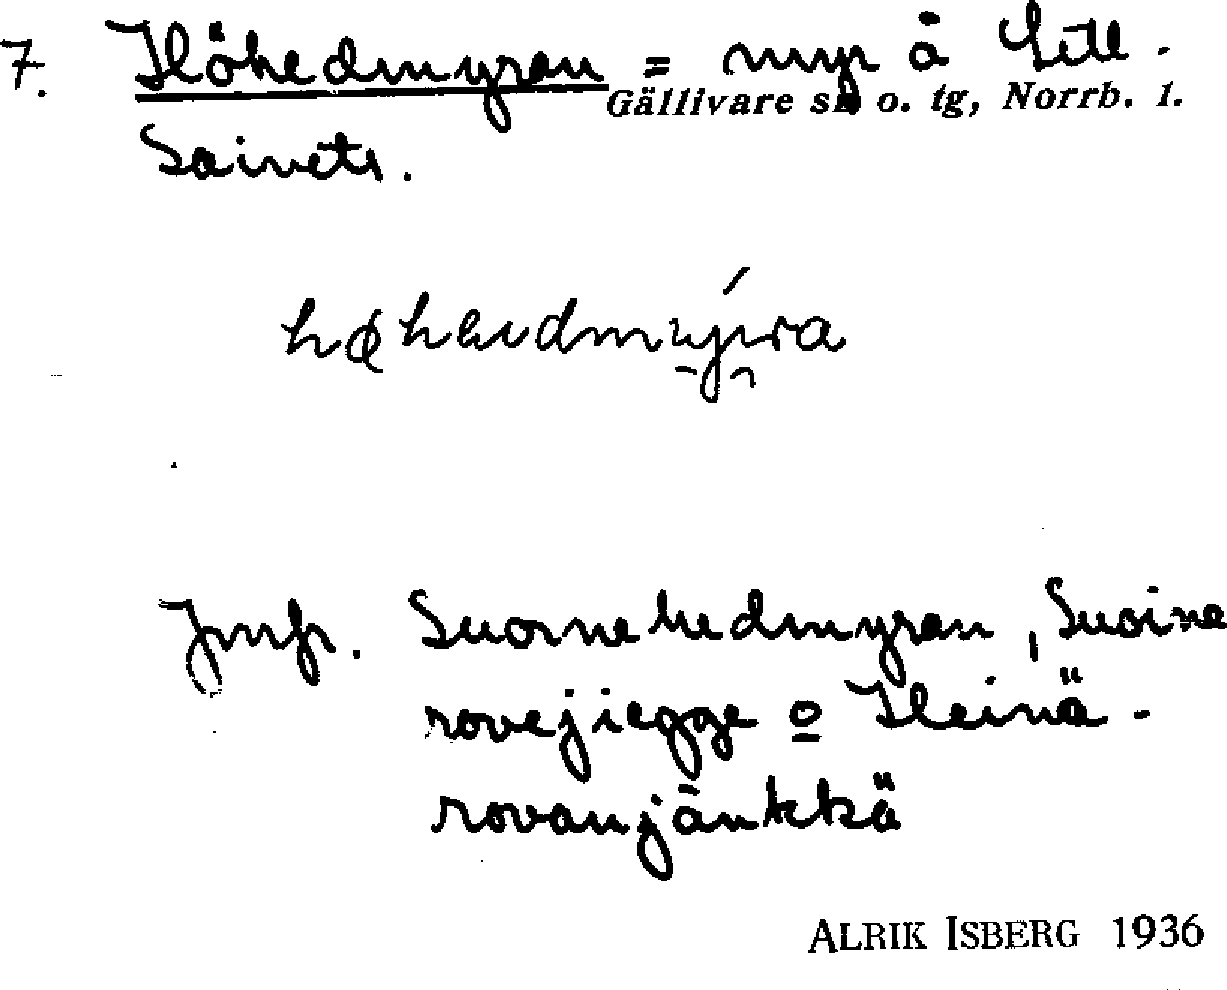 7. Höhedmyran = myr å Lill-
Gällivare sn o. tg, Norrb. l.
Saivets.
høheidmyjra
Jmfr. Suoinehedmyran, Suoine
rovejiegge o Heinä-
rovanjänkkä
ALRIK ISBERG 1936